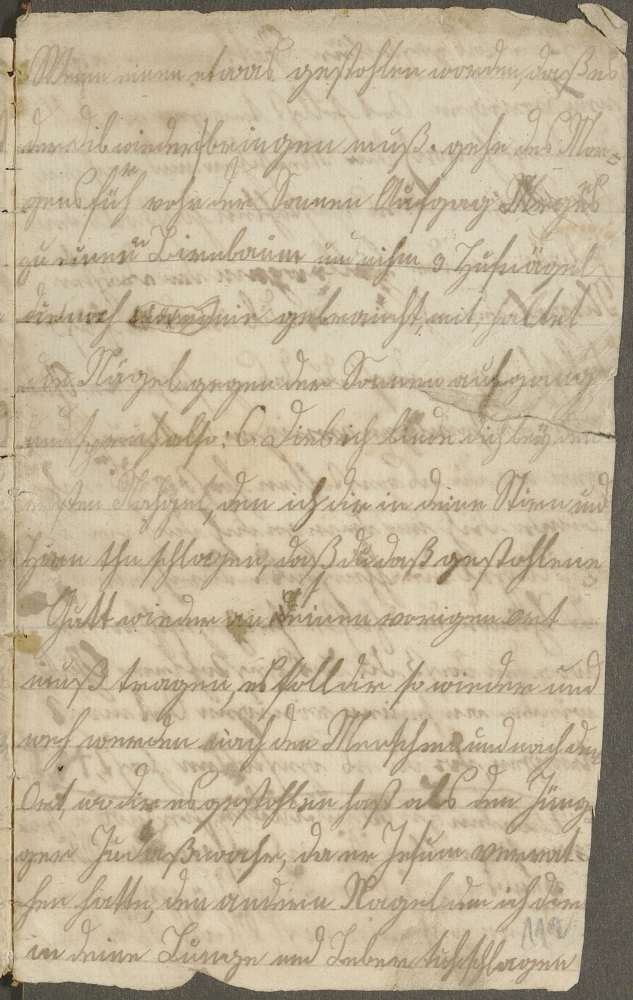 Wenn einen etwas gestohlen worden, daß es
der dib wieder bringen muß. gehe des Mor-
gens früh vohr der Sonnen Aufgag
zu einen Birnbaum und nihm 3 Hufnägel
die noch nie gebraucht, mit, haltet
die Nägel gegen der Sonnen aufgang
und sprich also: O Dieb ich binde dich bey den
ersten Nahgel, den ich dir in deine Stirn und
Hirn thu schlagen, daß du daß gestohlene
Gutt wieder an seinen vorigen ort
muß tragen, es soll dir so wieder und
weh werden nach den Menschen und nach den
Ort, wo du es gestohlen hast als den Jüng-
ger Judaß wahr, da er Jesum verrat-
hen hatte, den andern Nagel den ich dir
in deine Lunge und Leber thu schlagen
112